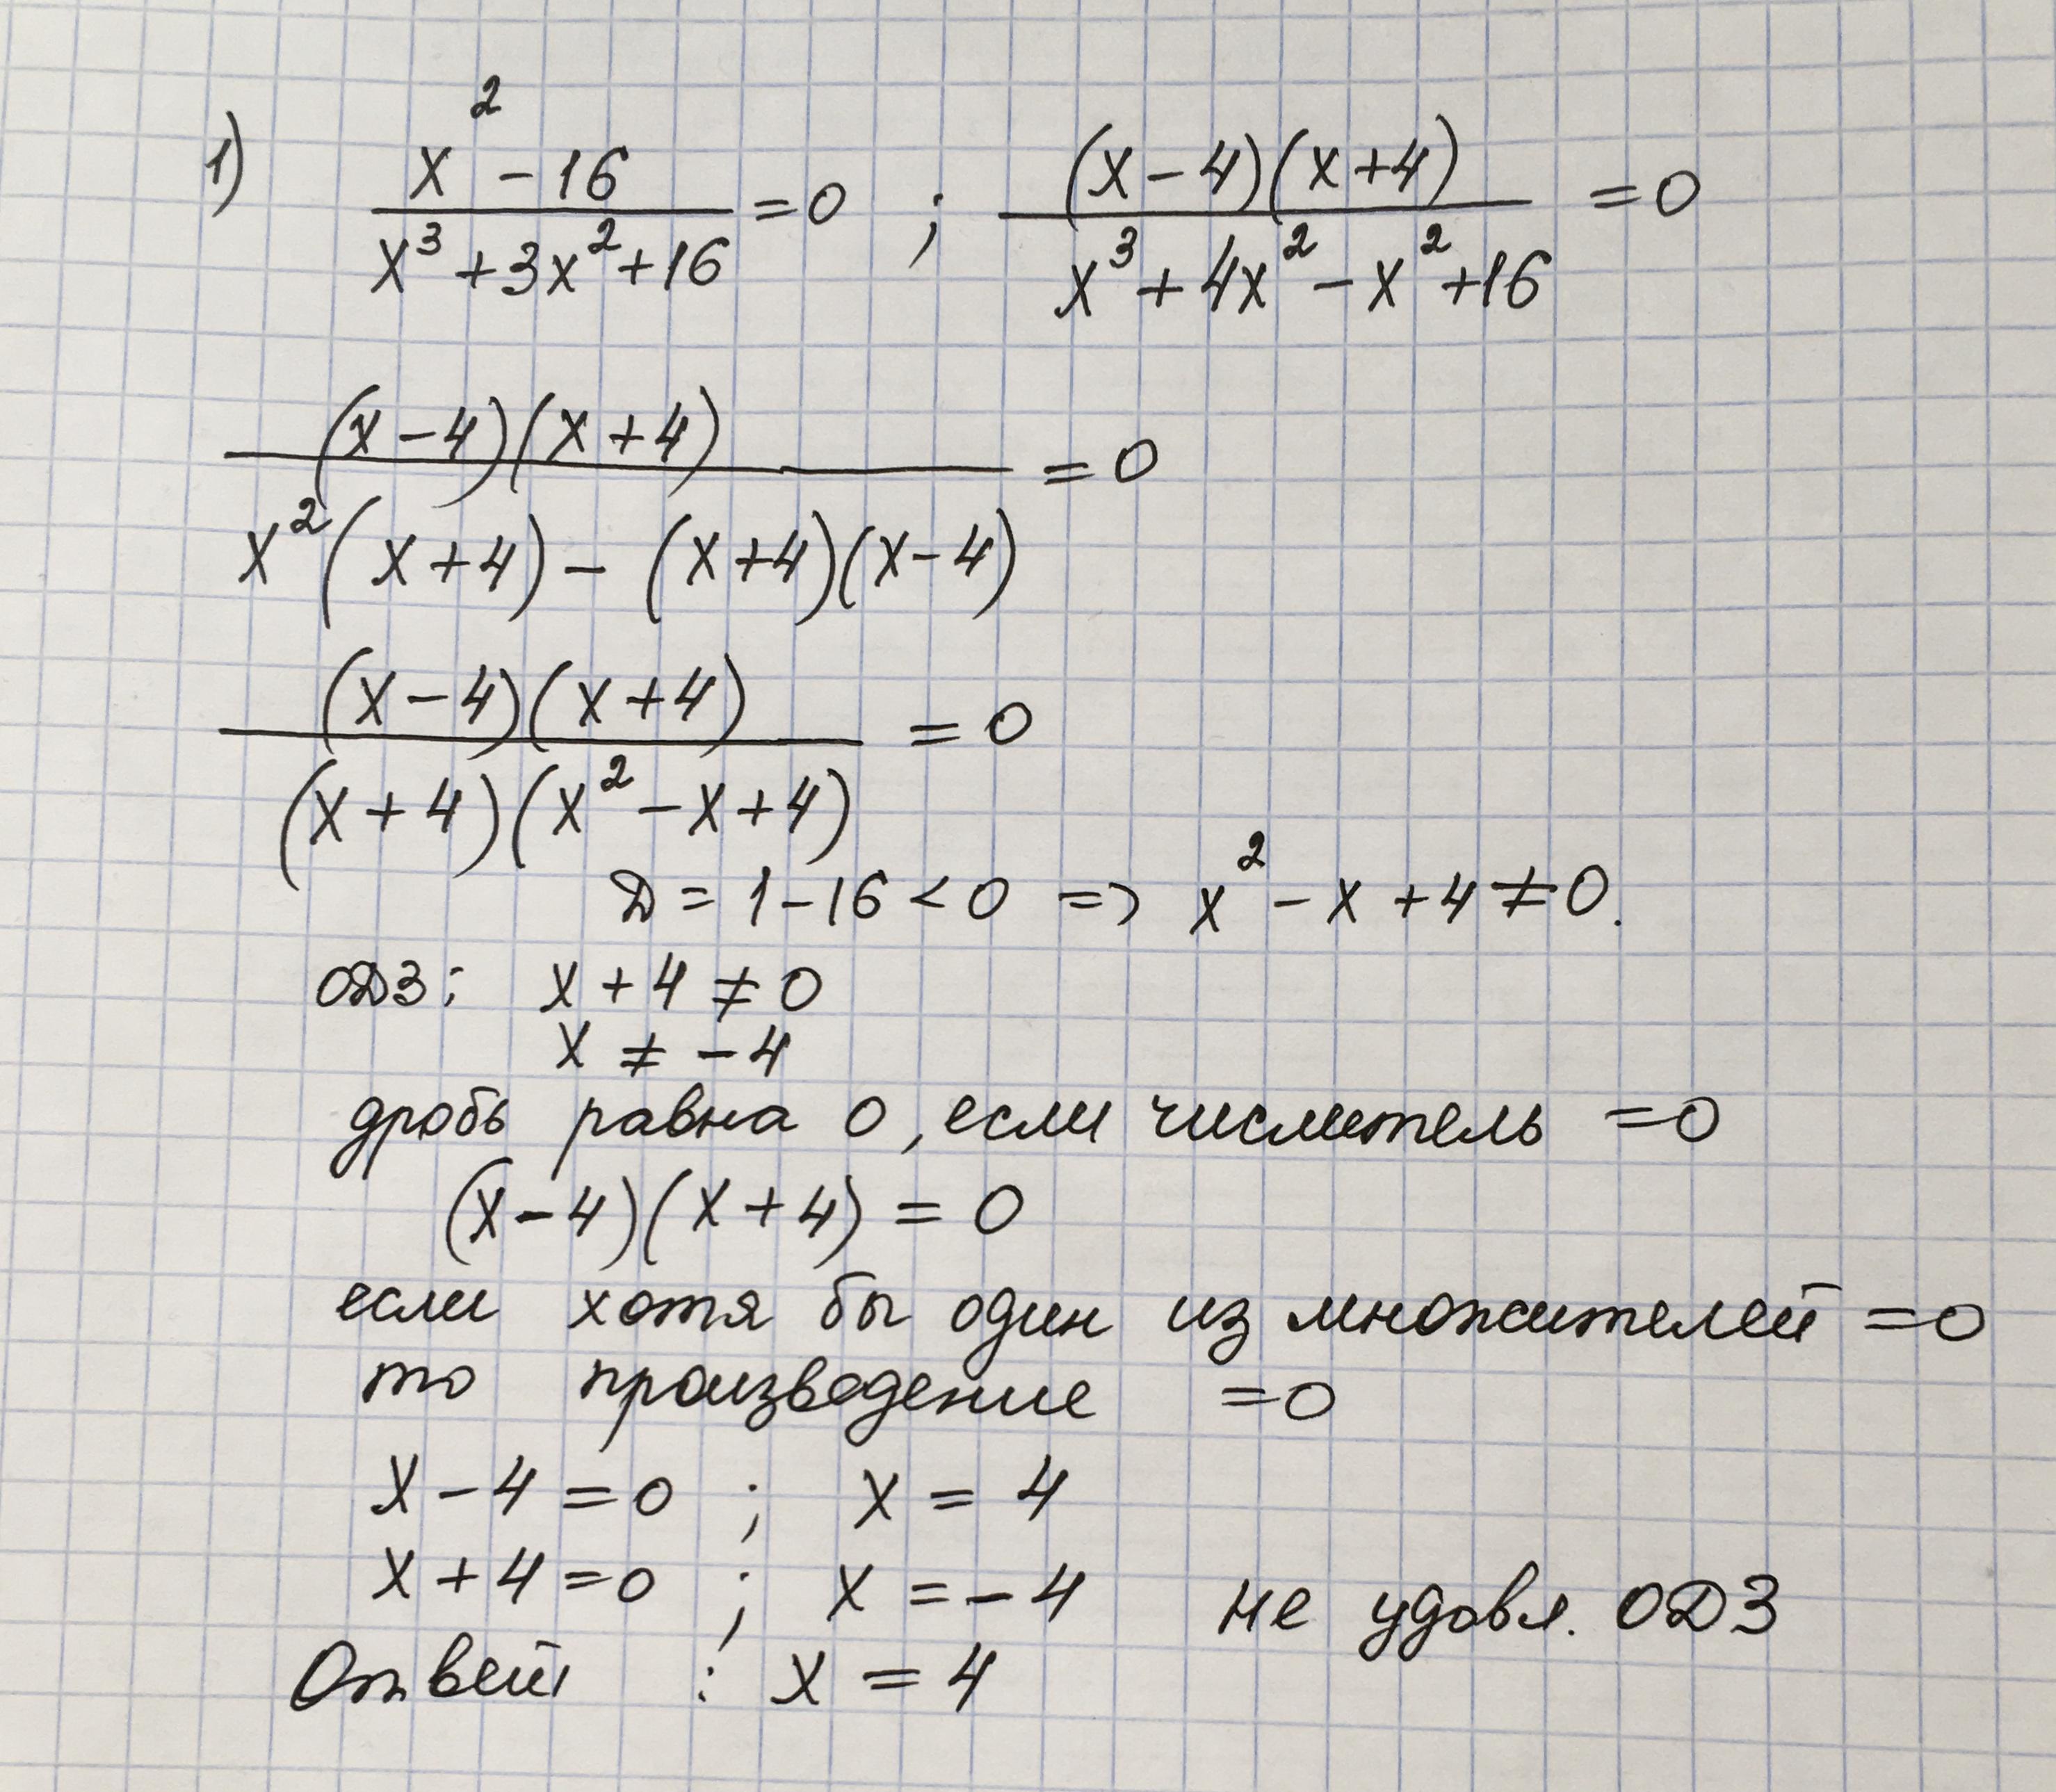 1) (x² - 16)/(x³ + 3x² + 16) = 0 ; ((x - 4)(x + 4))/(x³ + 4x² - x² + 16) = 0
((x - 4)(x + 4))/(x²(x + 4) - (x + 4)(x - 4)) = 0
((x - 4)(x + 4))/((x + 4)(x² - x + 4)) = 0
Д = 1 - 16 < 0 => x² - x + 4 ≠ 0.
ОДЗ: x + 4 ≠ 0
x ≠ -4
дробь равна 0, если числитель = 0
(x - 4)(x + 4) = 0
если хотя бы один из множителей = 0
то произведение = 0
x - 4 = 0 ; x = 4
x + 4 = 0 ; x = -4 не удовл. ОДЗ
Ответ : x = 4